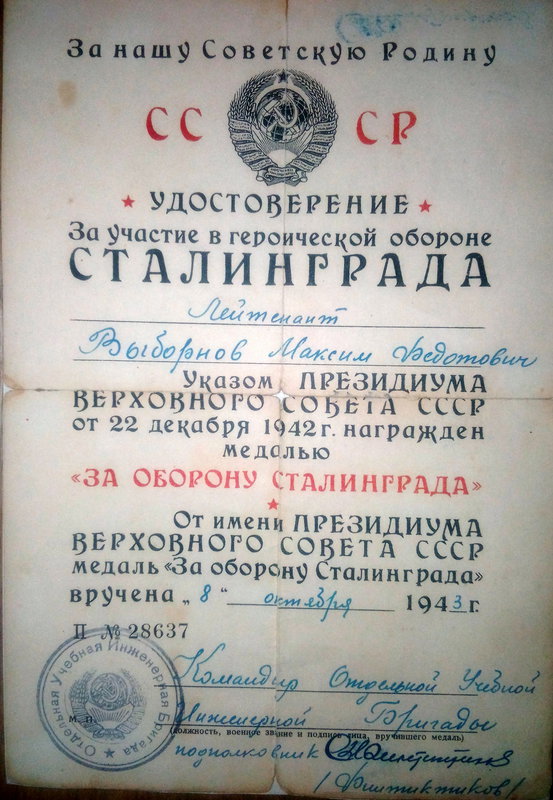 За нашу Советскую Родину
СС СР
УДОСТОВЕРЕНИЕ
За участие в героической обороне
СТАЛИНГРАДА
Лейтенант
Выборнов Максим Федотович
Указом ПРЕЗИДИУМА
ВЕРХОВНОГО СОВЕТА СССР
от 22 декабря 1942 г. награжден
медалью
«ЗА ОБОРОНУ СТАЛИНГРАДА»
От имени ПРЕЗИДИУМА
ВЕРХОВНОГО СОВЕТА СССР
медаль «За оборону Сталинграда»
вручена „8“ октября 1943 г.
П № 28637
Отдельная Учебная Инженерная Бригада
М. П.
Командир Отдельной Учебной
Инженерной Бригады
(должность, военное звание и подпись лица, вручившего медаль)
подполковник